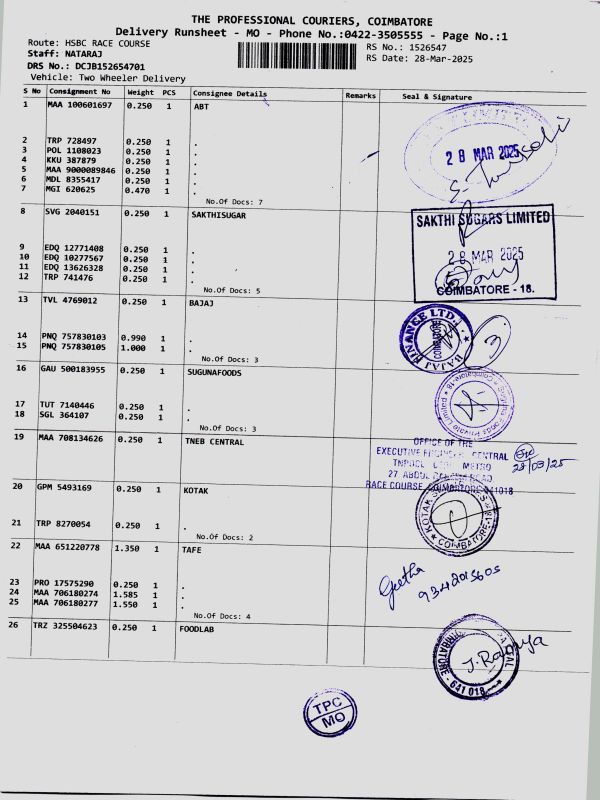 THE PROFESSIONAL COURIERS, COIMBATORE
Delivery Runsheet - MO - Phone No.:0422-3505555 - Page No.:1
Route: HSBC RACE COURSE
RS No.: 1526547
Staff: NATARAJ
RS Date: 28-Mar-2025
DRS No.: DCJB152654701
Vehicle: Two Wheeler Delivery
S No Consignment No Weight PCS Consignee Details Remarks Seal & Signature
1 MAA 100601697 0.250 1 ABT
28 MAR 2025
2 TRP 728497 0.250 1 .
3 POL 1108023 0.250 1 .
4 KKU 387879 0.250 1 .
5 MAA 9000089846 0.250 1 .
6 MDL 8355417 0.250 1 .
7 MGI 620625 0.470 1 .
No.Of Docs: 7
8 SVG 2040151 0.250 1 SAKTHISUGAR
SAKTHI SUGARS LIMITED
28 MAR 2025
COIMBATORE - 18.
9 EDQ 12771408 0.250 1 .
10 EDQ 10277567 0.250 1 .
11 EDQ 13626328 0.250 1 .
12 TRP 741476 0.250 1 .
No.Of Docs: 5
13 TVL 4769012 0.250 1 BAJAJ
BAJAJ FINANCE LTD.
COIMBATORE
3
14 PNQ 757830103 0.990 1 .
15 PNQ 757830105 1.000 1 .
No.Of Docs: 3
16 GAU 500183955 0.250 1 SUGUNAFOODS
17 TUT 7140446 0.250 1 .
18 SGL 364107 0.250 1 .
No.Of Docs: 3
19 MAA 708134626 0.250 1 TNEB CENTRAL
OFFICE OF THE
EXECUTIVE ENGINEER CENTRAL
METRO
28/03/25
27, ABDUL ROAD
RACE COURSE, COIMBATORE-641018
20 GPM 5493169 0.250 1 KOTAK
KOTAK
COIMBATORE-18
21 TRP 8270054 0.250 1 .
No.Of Docs: 2
22 MAA 651220778 1.350 1 TAFE
Geetha
9342013605
23 PRO 17575290 0.250 1 .
24 MAA 706180274 1.585 1 .
25 MAA 706180277 1.550 1 .
No.Of Docs: 4
26 TRZ 325504623 0.250 1 FOODLAB
COIMBATORE - 641 018
J. Ramya
TPC
MO